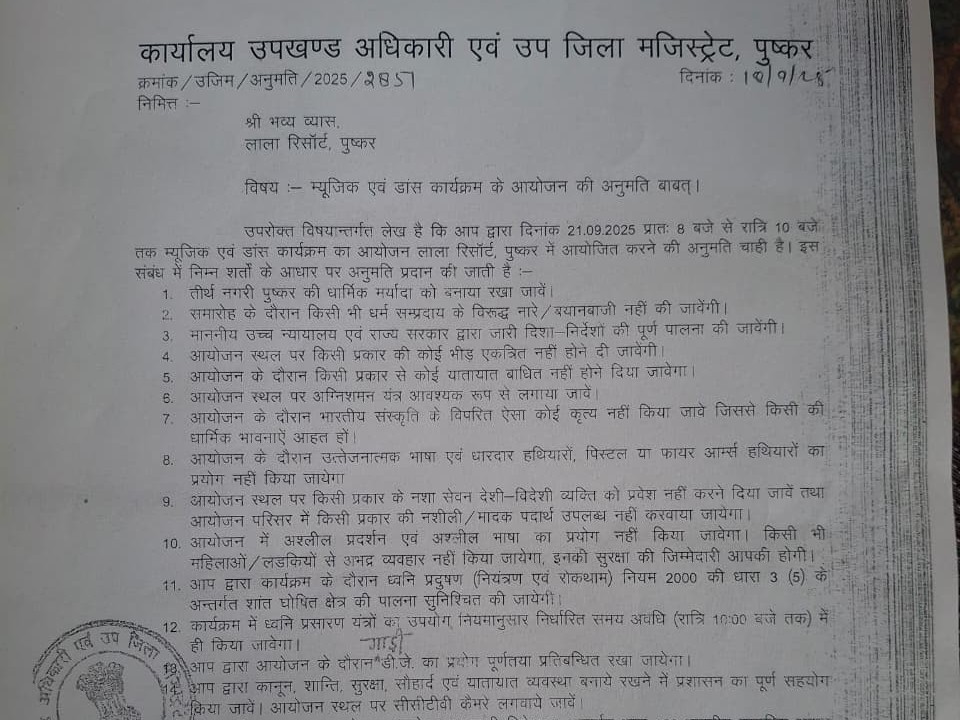 कार्यालय उपखण्ड अधिकारी एवं उप जिला मजिस्ट्रेट, पुष्कर
क्रमांक/उजिम/अनुमति/2025/2851 दिनांक :
निमित्त :–
श्री भव्य व्यास,
लाला रिसॉर्ट, पुष्कर
विषय :– म्यूजिक एवं डांस कार्यक्रम के आयोजन की अनुमति बाबत्।
उपरोक्त विषयान्तर्गत लेख है कि आप द्वारा दिनांक 21.09.2025 प्रातः 8 बजे से रात्रि 10 बजे
तक म्यूजिक एवं डांस कार्यक्रम का आयोजन लाला रिसॉर्ट, पुष्कर में आयोजित करने की अनुमति चाही है। इस
संबंध में निम्न शर्तो के आधार पर अनुमति प्रदान की जाती है :–
1. तीर्थ नगरी पुष्कर की धार्मिक मर्यादा को बनाया रखा जावें।
2. समारोह के दौरान किसी भी धर्म सम्प्रदाय के विरूद्ध नारे/बयानबाजी नहीं की जावेंगी।
3. माननीय उच्च न्यायालय एवं राज्य सरकार द्वारा जारी दिशा–निर्देशों की पूर्ण पालना की जावेंगी।
4. आयोजन स्थल पर किसी प्रकार की कोई भीड़ एकत्रित नहीं होने दी जावेगी।
5. आयोजन के दौरान किसी प्रकार से कोई यातायात बाधित नहीं होने दिया जावेगा।
6. आयोजन स्थल पर अग्निशमन यंत्र आवश्यक रूप से लगाया जावें।
7. आयोजन के दौरान भारतीय संस्कृति के विपरित ऐसा कोई कृत्य नहीं किया जावे जिससे किसी की
धार्मिक भावनाऐं आहत हों।
8. आयोजन के दौरान उत्तेजनात्मक भाषा एवं धारदार हथियारों, पिस्टल या फायर आर्म्स हथियारों का
प्रयोग नहीं किया जायेगा
9. आयोजन स्थल पर किसी प्रकार के नशा सेवन देशी–विदेशी व्यक्ति को प्रवेश नहीं करने दिया जावें तथा
आयोजन परिसर में किसी प्रकार की नशीली/मादक पदार्थ उपलब्ध नहीं करवाया जायेगा।
10. आयोजन में अश्लील प्रदर्शन एवं अश्लील भाषा का प्रयोग नहीं किया जावेगा। किसी भी
महिलाओं/लडकियों से अभद्र व्यवहार नहीं किया जायेगा, इनकी सुरक्षा की जिम्मेदारी आपकी होगी।
11. आप द्वारा कार्यक्रम के दौरान ध्वनि प्रदुषण (नियंत्रण एवं रोकथाम) नियम 2000 की धारा 3 (5) के
अन्तर्गत शांत घोषित क्षेत्र की पालना सुनिश्चित की जायेगी।
12. कार्यक्रम में ध्वनि प्रसारण यंत्रों का उपयोग नियमानुसार निर्धारित समय अवधि (रात्रि 10:00 बजे तक) में
ही किया जावेगा।
गाड़ी
13. आप द्वारा आयोजन के दौरान डी.जे. का प्रयोग पूर्णतया प्रतिबन्धित रखा जायेगा।
14. आप द्वारा कानून, शान्ति, सुरक्षा, सौहार्द एवं यातायात व्यवस्था बनाये रखने में प्रशासन का पूर्ण सहयोग
किया जावें। आयोजन स्थल पर सीसीटीवी कैमरे लगवाये जावें।
अधिकारी एवं उप जिला